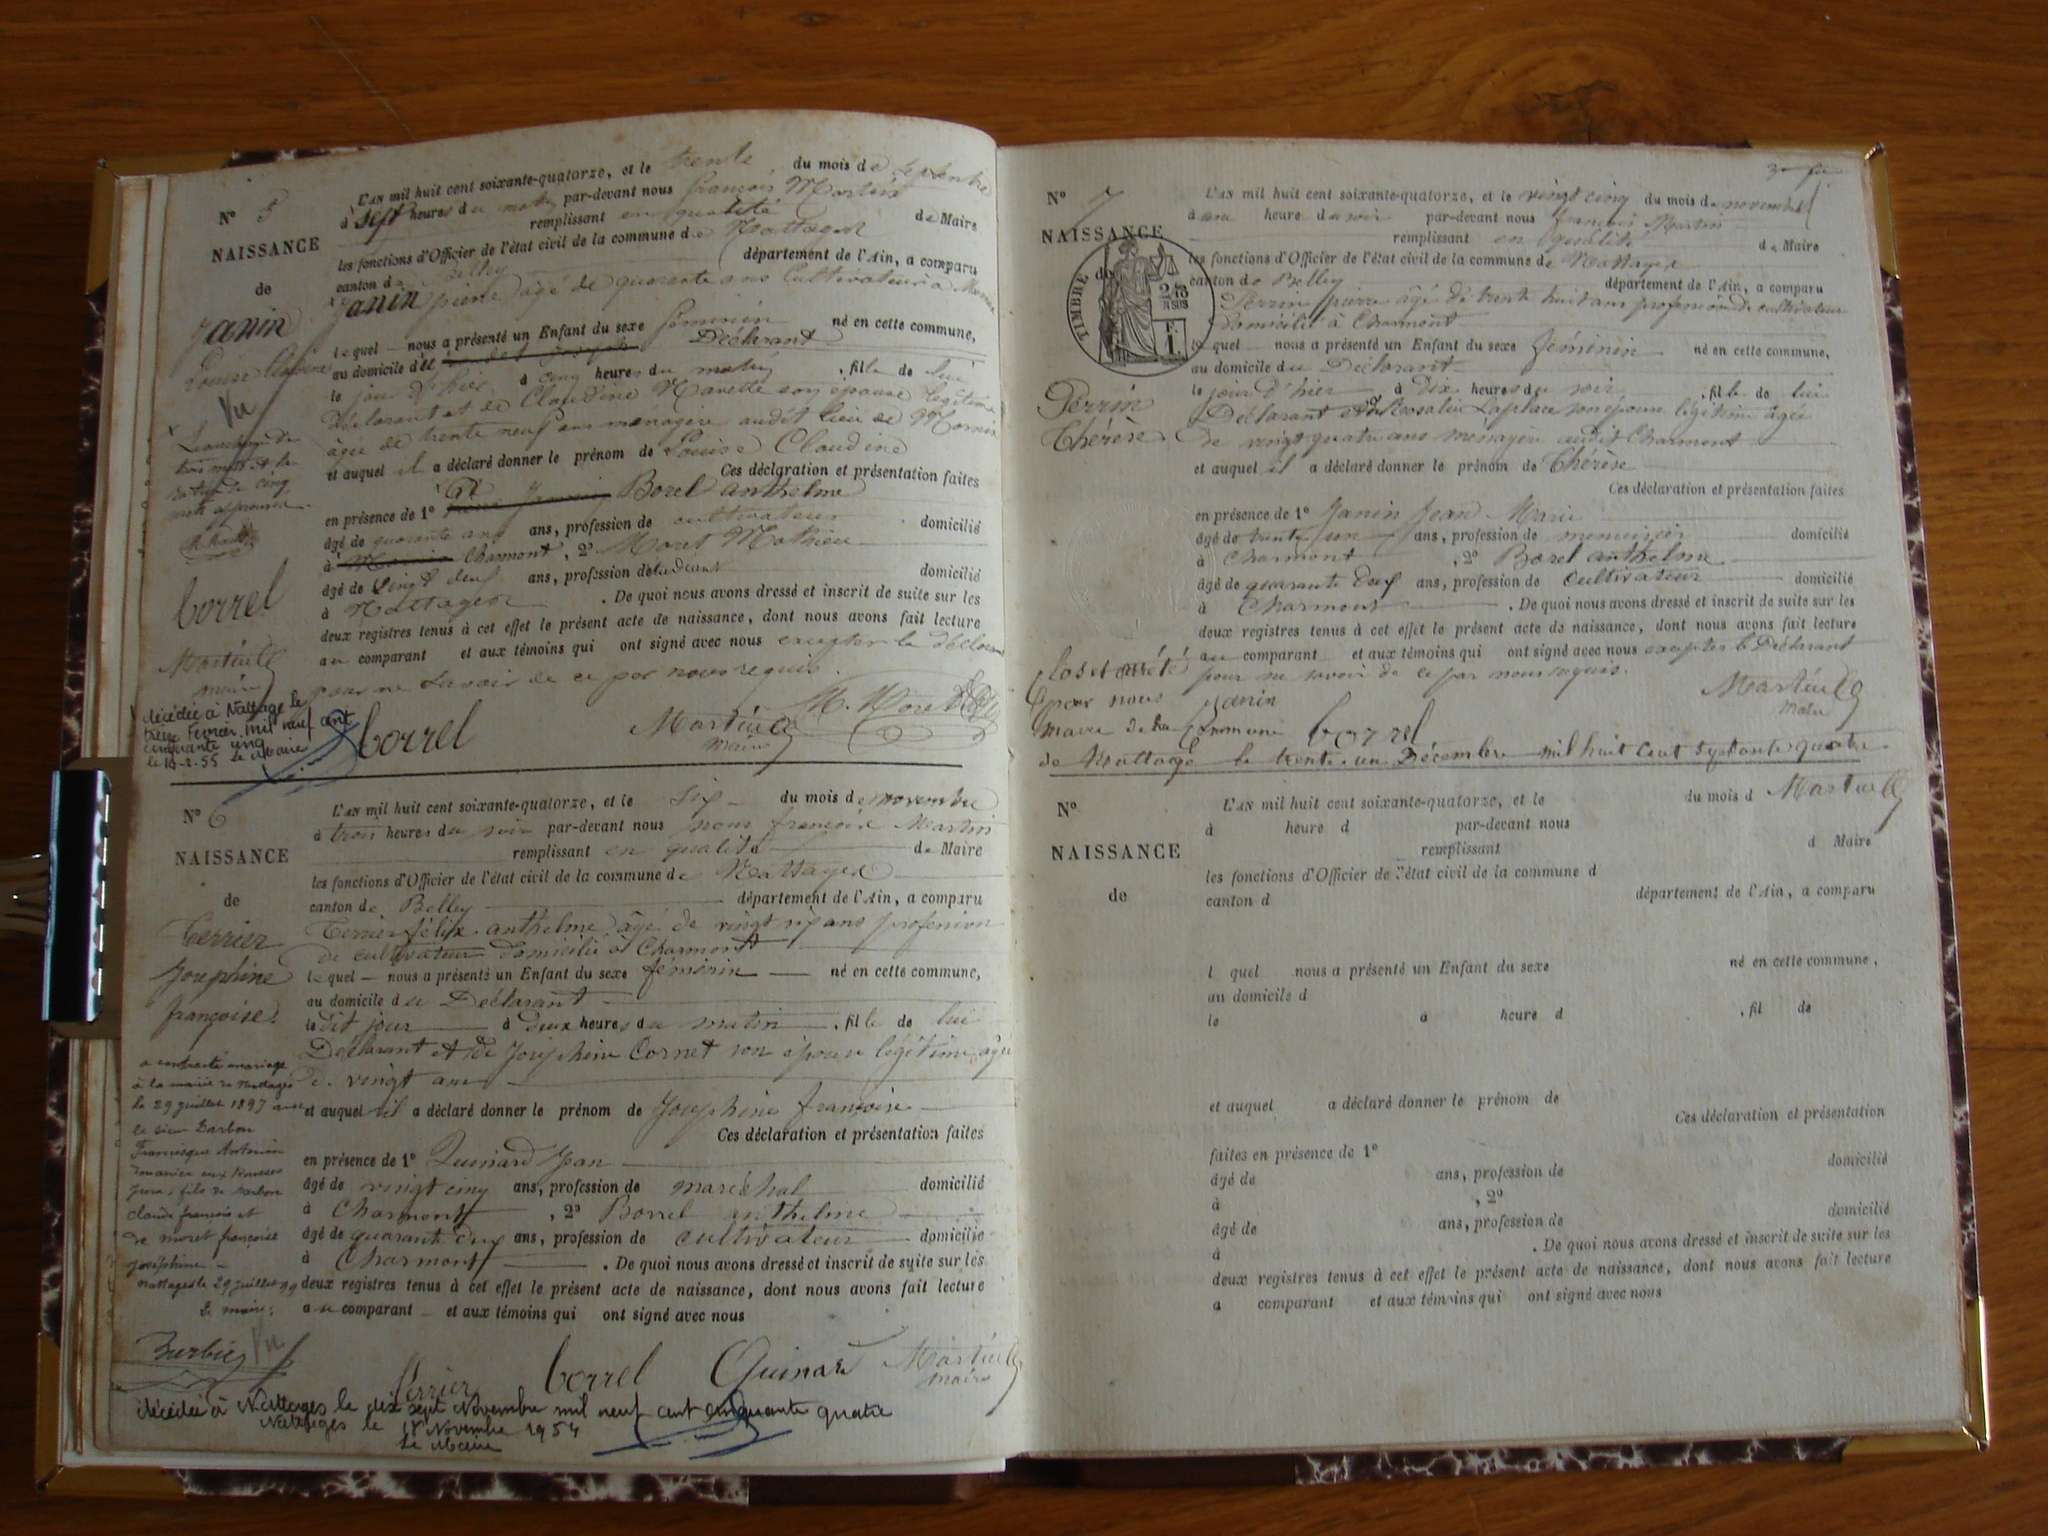 N° 5
NAISSANCE
de
Janin
Louise Claudine
Vu
L'an mil huit cent soixante-quatorze, et le trente du mois de septembre
à sept heures du matin par-devant nous françois Martin
remplissant en qualité de Maire
les fonctions d'Officier de l'état civil de la commune de Nattages
canton de Belley département de l'Ain, a comparu
Janin pierre âgé de quarante ans Cultivateur à
lequel nous a présenté un Enfant du sexe féminin né en cette commune,
au domicile d Déclarant
le jour d'hier à cinq heures du matin, fille de lui
Déclarant et de Claudine Navette son épouse légitime
âgée de trente neuf ans ménagère audit lieu de
et auquel il a déclaré donner le prénom de Louise Claudine
Ces déclaration et présentation faites
en présence de 1° Borel anthelme
âgé de quarante ans ans, profession de cultivateur domicilié
à Charmont, 2° Moret Mathieu
âgé de vingt deux ans, profession d'étudiant domicilié
à Nattages. De quoi nous avons dressé et inscrit de suite sur les
deux registres tenus à cet effet le présent acte de naissance, dont nous avons fait lecture
au comparant et aux témoins qui ont signé avec nous excepter le déclarant
pour ne savoir de ce par nous requis.
borrel
maire
décédée à Nattages le
treize Fevrier mil neuf cent
cinquante cinq
le 14-2-55 Le Maire
borrel
maire
N° 6
NAISSANCE
de
Terrier
Josephine
françoise.
L'an mil huit cent soixante-quatorze, et le six du mois de novembre
à trois heures du soir par-devant nous nous françois Martin
remplissant en qualité de Maire
les fonctions d'Officier de l'état civil de la commune de Nattages
canton de Belley département de l'Ain, a comparu
Terrier félix anthelme âgé de vingt six ans profession
de cultivateur domicilié à Charmont
lequel nous a présenté un Enfant du sexe féminin né en cette commune,
au domicile du Déclarant
le dit jour à deux heures du matin, fille de lui
Déclarant et de Joséphine Cornet son épouse légitime âgée
de vingt ans
et auquel il a déclaré donner le prénom de Joséphine françoise
Ces déclaration et présentation faites
en présence de 1° Quinard Jean
âgé de vingt cinq ans, profession de maréchal domicilié
à Charmont, 2° Borrel anthelme
âgé de quarante deux ans, profession de cultivateur domicilié
à Charmont. De quoi nous avons dressé et inscrit de suite sur les
deux registres tenus à cet effet le présent acte de naissance, dont nous avons fait lecture
au comparant et aux témoins qui ont signé avec nous
a contracté mariage
à la mairie de Nattages
le 29 juillet 1897 avec
le sieur Barbon
Francisque Antonin
fils de Barbon
claude françois et
de moret françoise
joséphine
nattages le 29 juillet
le maire:
Vu
Terrier borrel Quinard
maire
décédée à Nattages le dix sept Novembre mil neuf cent cinquante quatre
Nattages le 18 Novembre 1954
Le Maire
N° 7
NAISSANCE
de
TIMBRE
Perrin
Thérèse
L'an mil huit cent soixante-quatorze, et le vingt cinq du mois de novembre
à une heure du soir par-devant nous françois Martin
remplissant en qualité de Maire
les fonctions d'Officier de l'état civil de la commune de Nattages
canton de Belley département de l'Ain, a comparu
Perrin pierre âgé de trente huit ans profession de cultivateur
domicilié à Charmont
lequel nous a présenté un Enfant du sexe féminin né en cette commune,
au domicile du Déclarant
le jour d'hier à dix heures du soir, fille de lui
Déclarant et de Rosalie Laplace son épouse légitime âgée
de vingt quatre ans ménagère audit Charmont
et auquel il a déclaré donner le prénom de Thérèse
Ces déclaration et présentation faites
en présence de 1° Janin Jean Marie
âgé de trente un ans, profession de menuisier domicilié
à Charmont, 2° Borel anthelme
âgé de quarante deux ans, profession de Cultivateur domicilié
à Charmont. De quoi nous avons dressé et inscrit de suite sur les
deux registres tenus à cet effet le présent acte de naissance, dont nous avons fait lecture
au comparant et aux témoins qui ont signé avec nous excepter le Déclarant
pour ne savoir de ce par nous requis.
janin
borrel
maire
Clos et arrêté
par nous
maire de la Commune
de Nattages le trente un Décembre mil huit cent septante quatre
N°
NAISSANCE
de
L'an mil huit cent soixante-quatorze, et le du mois d
à heure d par-devant nous
remplissant d Maire
les fonctions d'Officier de l'état civil de la commune d
canton d département de l'Ain, a comparu
l quel nous a présenté un Enfant du sexe né en cette commune,
au domicile d
le à heure d, fil de
et auquel a déclaré donner le prénom de
Ces déclaration et présentation
faites en présence de 1°
âgé de ans, profession de domicilié
à , 2°
âgé de ans, profession de domicilié
à . De quoi nous avons dressé et inscrit de suite sur les
deux registres tenus à cet effet le présent acte de naissance, dont nous avons fait lecture
a comparant et aux témoins qui ont signé avec nous